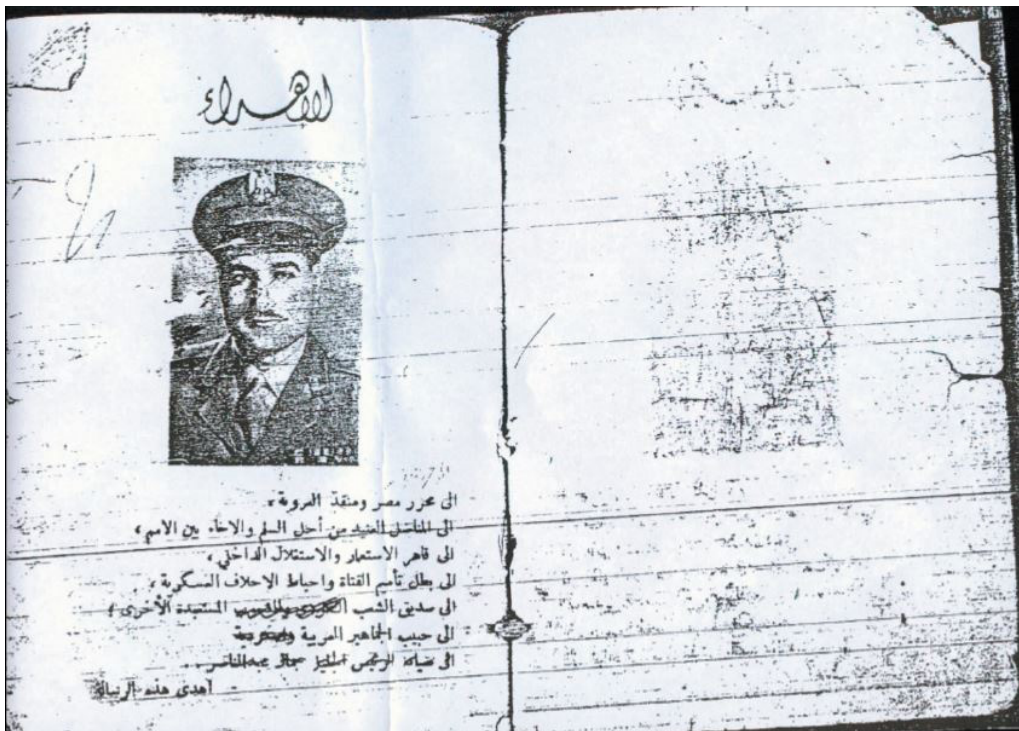 الاهداء
الى محرر مصر ومنقذ العروبة ،
الى المناضل العنيد من أجل السلم والاخاء بين الامم ،
الى قاهر الاستعمار والاستغلال الداخلي ،
الى بطل تأميم القناة واحباط الاحلاف العسكرية ،
الى صديق الشعب الكوردي والشعوب المستعبدة الأخرى ؛
الى حبيب الجماهير العربية
الى سيادة الرئيس الجليل جمال عبدالناصر . . .
أهدي هذه الرسالة